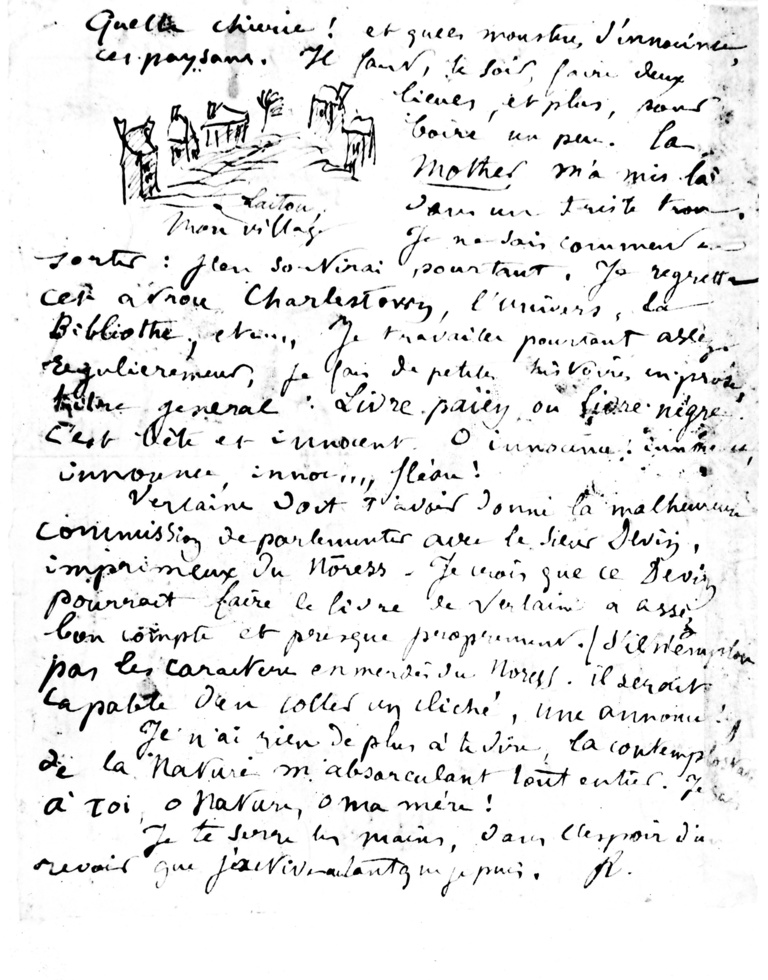 Quelle chierie ! et quels monstres d'innocince,
ces paysans. Il faut, le soir, faire deux
lieues, et plus, pour
boire un peu. La
Mother m'a mis là
dans un triste trou.
Laïtou,
Mon village
Je ne sais comment en
sortir : j'en sortirai pourtant. Je regrette
cet atroce Charlestown, l'Univers, la
Bibliothè, etc... Je travaille pourtant assez
régulièrement, je fais de petites histoires en prose,
titre général : Livre païen, ou Livre nègre.
C'est bête et innocent. O innocence ! innocence,
innocence, innoc..., fléau !
Verlaine doit t'avoir donné la malheureuse
commission de parlementer avec le sieur Devin,
imprimeux du Nôress. Je crois que ce Devin
pourrait faire le livre de Verlaine à assez
bon compte et presque proprement. (S'il n'emploie
pas les caractères emmerdés du Noress. il serait
capable d'en coller un cliché, une annonce !)
Je n'ai rien de plus à te dire, la contemplostate
de la Nature m'absorculant tout entier. Je suis
à toi, o Nature, o ma mère !
Je te serre les mains, dans l'espoir d'un
revoir que j'active autant que je puis. R.